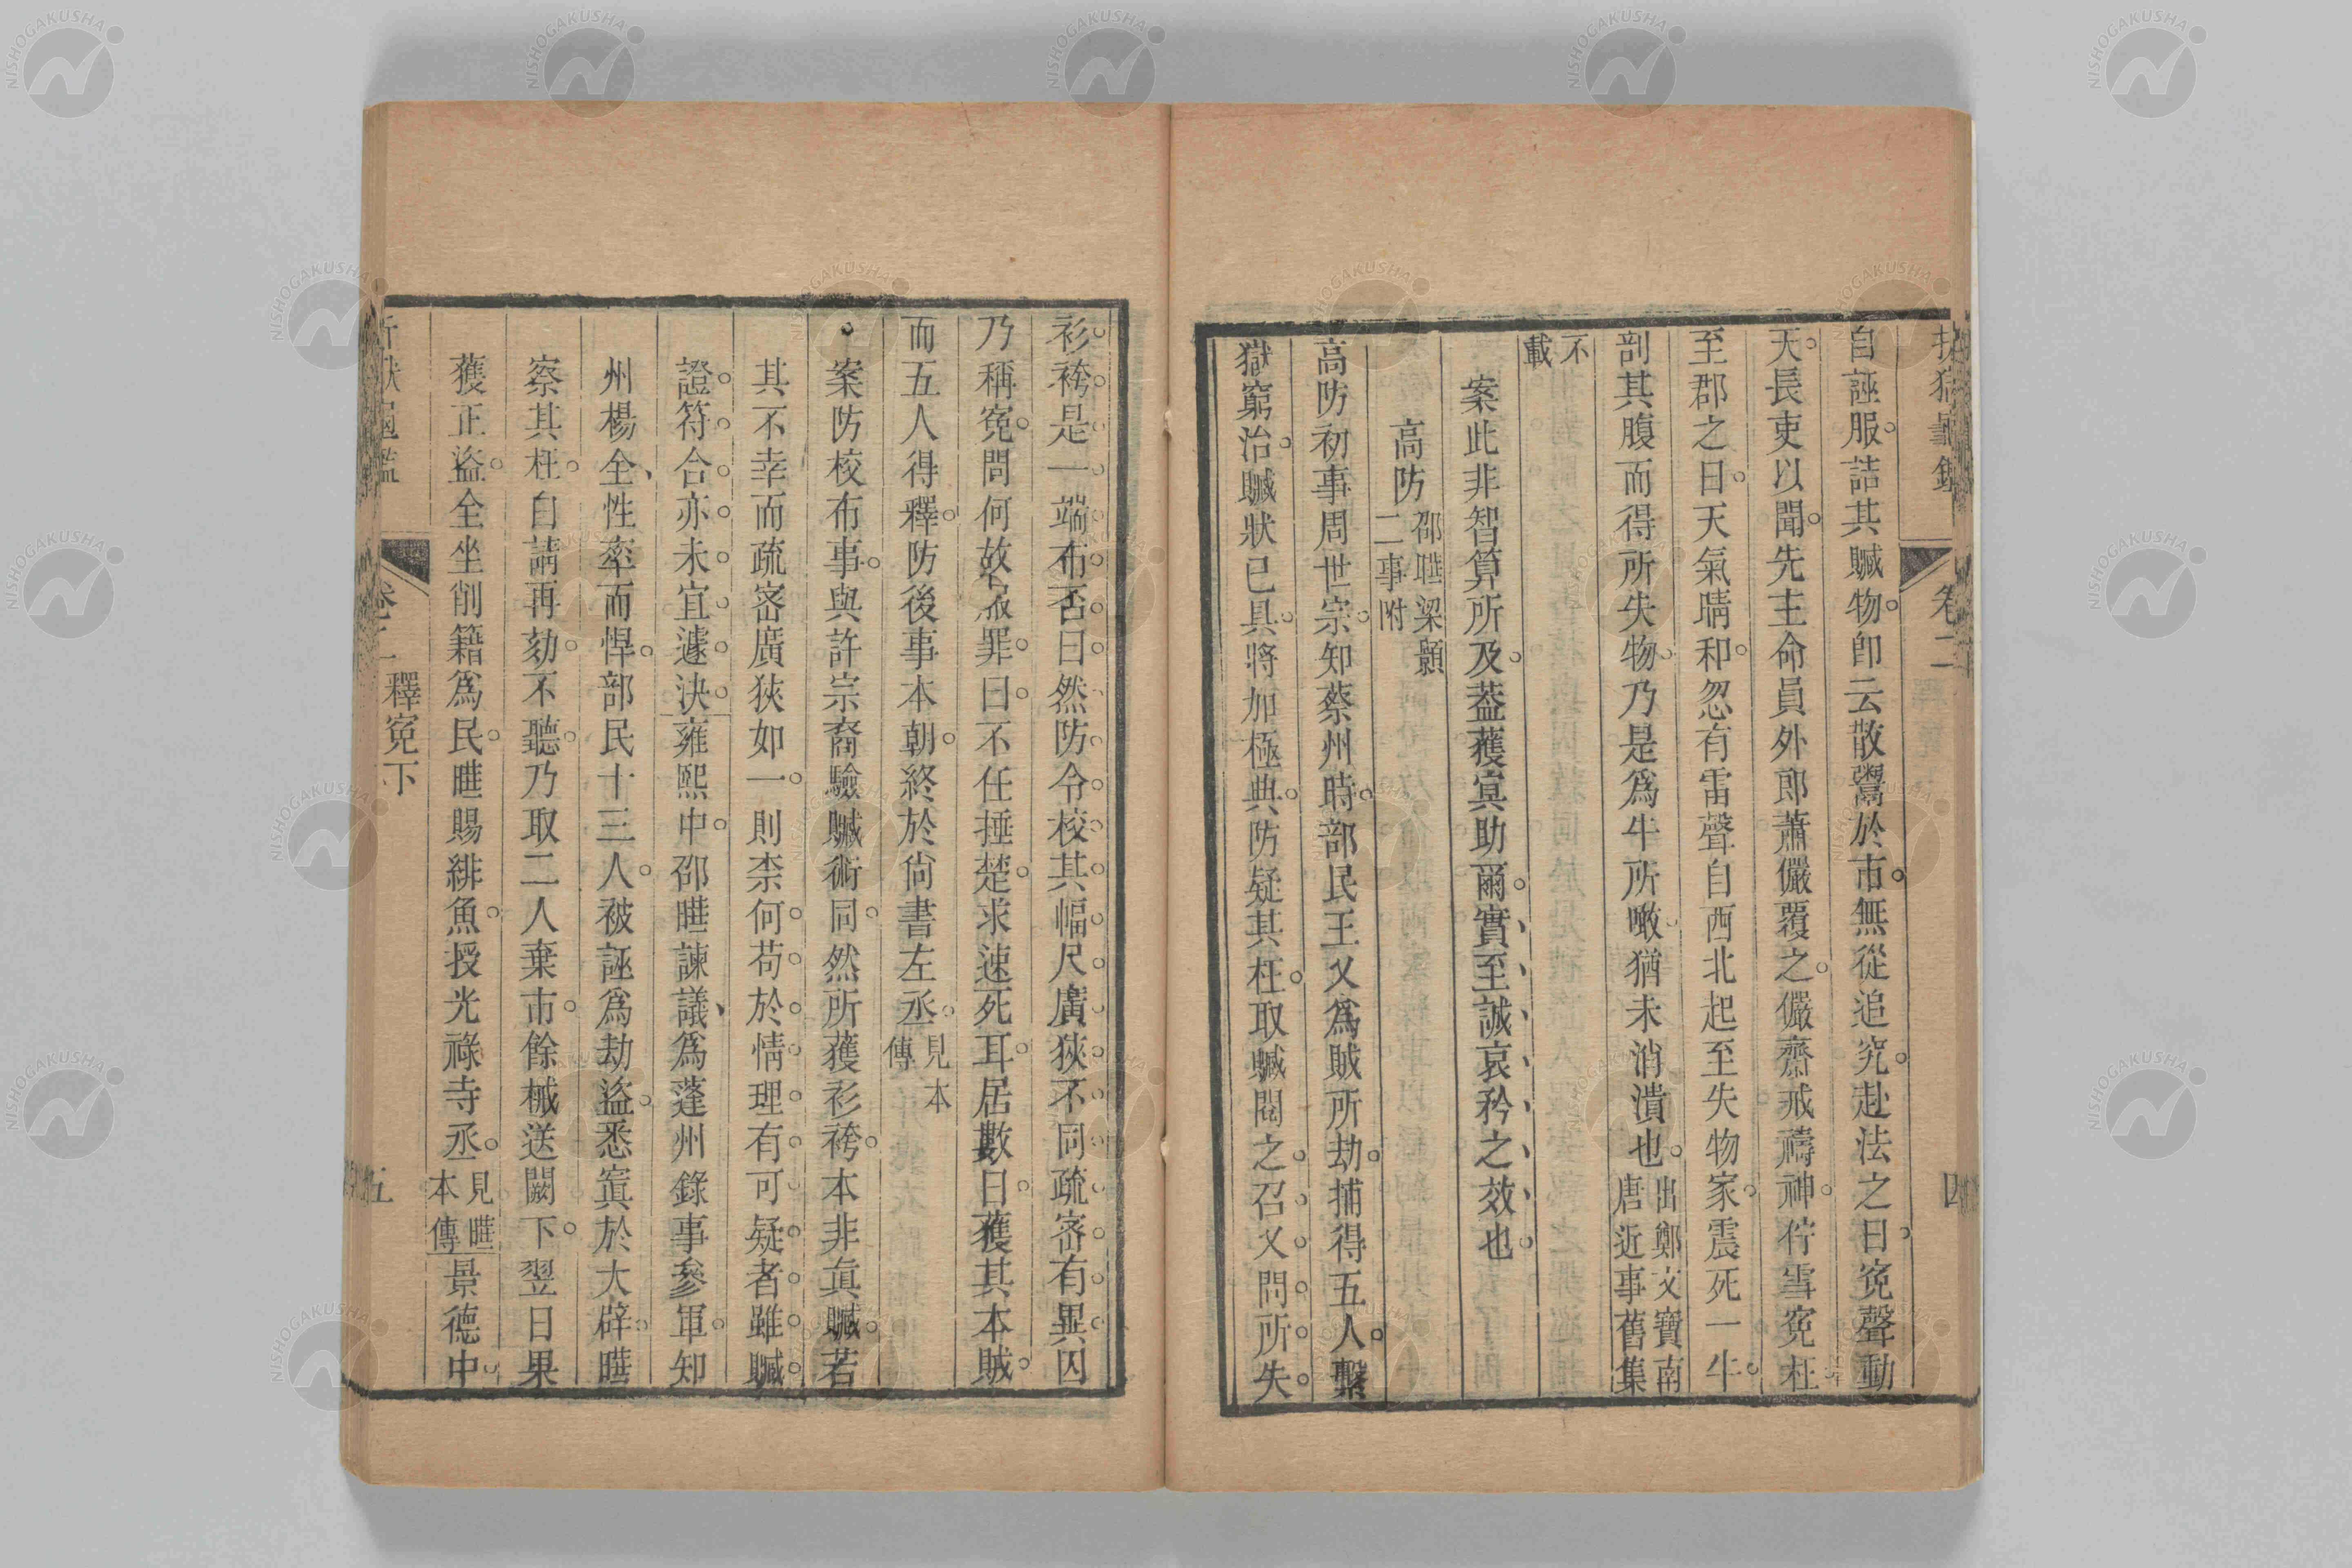 折獄龜鑑 卷二 四
自誣服詰其贓物卽云散鬻於市無從追究赴法之日寃聲動
天長吏以聞先主命員外郎蕭儼覆之儼齋戒禱神佇雪寃枉
至郡之日天氣晴和忽有雷聲自西北起至失物家震死一牛
剖其腹而得所失物乃是爲牛所噉猶未消潰也出鄭文寶南唐近事舊集
不載
案此非智算所及葢獲冥助爾實至誠哀矜之效也
高防邵曄梁顥二事附
高防初事周世宗知蔡州時部民王乂爲賊所劫捕得五人繫
獄窮治贓狀已具將加極典防疑其枉取贓閱之召乂問所失
衫袴是一端布否曰然防令校其幅尺廣狹不同疏宻有異囚
乃稱寃問何故服罪曰不任捶楚求速死耳居數日獲其本賊
而五人得釋防後事本朝終於尙書左丞見本傳
案防校布事與許宗裔驗贓術同然所獲衫袴本非眞贓若
其不幸而疏宻廣狹如一則柰何苟於情理有可疑者雖贓
證符合亦未宜遽決雍熙中邵曄諫議爲蓬州錄事參軍知
州楊全性率而悍部民十三人被誣爲劫盜悉寘於大辟曄
察其枉白請再劾不聽乃取二人棄市餘械送闕下翌日果
獲正盜全坐削籍爲民曄賜緋魚授光祿寺丞見曄本傳景德中
折獄龜鑑 卷二 釋寃下 五
NISHOGAKUSHA